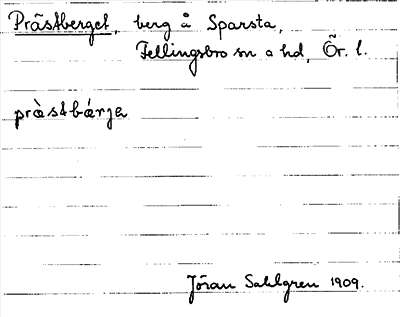 Prästberget, berg å Sparsta,
Fellingsbro sn o hd, Ör. l.
præ̀stbǽrja
Jöran Sahlgren 1909.